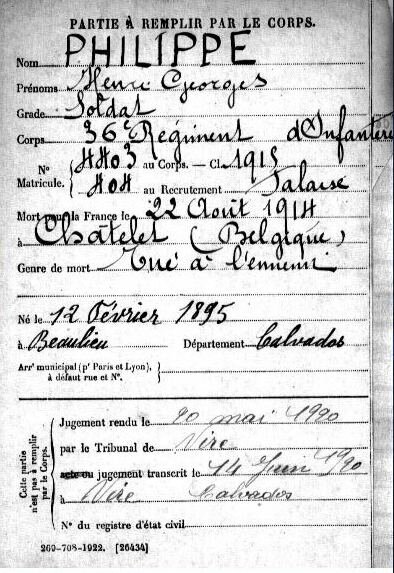 PARTIE À REMPLIR PAR LE CORPS.
Nom PHILIPPE
Prénoms Henri Georges
Grade Soldat
Corps 36e Régiment d'Infanterie
N° Matricule. { 4403 au Corps. — Cl. 1915
404 au Recrutement Falaise
Mort pour la France le 22 Août 1914
à Châtelet (Belgique)
Genre de mort Tué à l'ennemi
Né le 12 Février 1895
à Beaulieu Département Calvados
Arrt municipal (pr Paris et Lyon), à défaut rue et N°. }
Cette partie n'est pas à remplir par le Corps.
Jugement rendu le 20 mai 1920
par le Tribunal de Vire
acte ou jugement transcrit le 14 Juin 1920
à Vire Calvados
N° du registre d'état civil
269-708-1922. [26434]